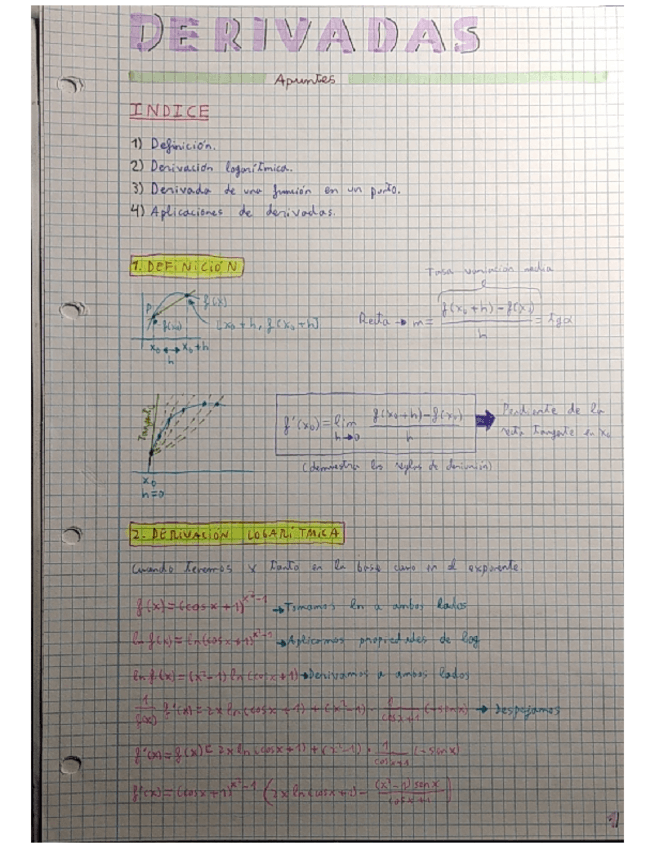 DERIVADAS
Apuntes
INDICE
1) Definición.
2) Derivación logarítmica.
3) Derivada de una función en un punto.
4) Aplicaciones de derivadas.
1. DEFINICIÓN
Tasa variacion media
P f(x)
f(x₀) [x₀+h, f(x₀+h)]
Recta → m = (f(x₀+h) - f(x₀))/h = tgα
x₀ ↔ x₀+h
h
Tangente
f'(x₀) = lim h→0 (f(x₀+h) - f(x₀))/h ➡ Pendiente de la
recta tangente en x₀
(demuestra las reglas de derivación)
x₀
h=0
2. DERIVACIÓN LOGARÍTMICA
Cuando tenemos x tanto en la base como en el exponente.
f(x) = (cos x + 1)^(x²-1) → Tomamos ln a ambos lados
ln f(x) = ln(cos x + 1)^(x²-1) → Aplicamos propiedades de log
ln f(x) = (x²-1) ln(cos x + 1) → Derivamos a ambos lados
1/f(x) f'(x) = 2x ln(cos x + 1) + (x²-1) · 1/(cos x + 1) (-sen x) → despejamos
f'(x) = f(x) [ 2x ln(cos x + 1) + (x²-1) · 1/(cos x + 1) (-sen x)
f'(x) = (cos x + 1)^(x²-1) (2x ln(cos x + 1) - (x²-1) sen x/(cos x + 1))
1